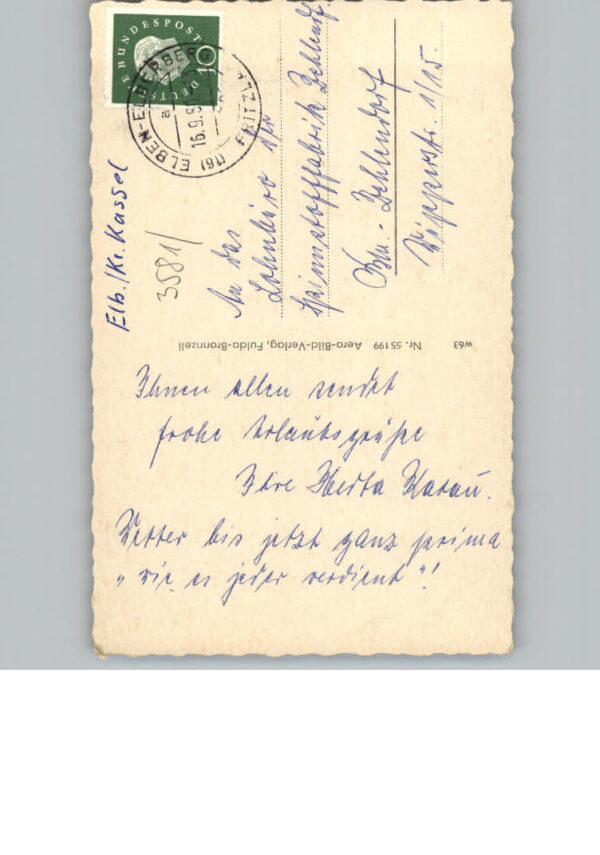 DEUTSCHE BUNDESPOST
10
(16) ELBEN-ELBERBERG
16.9.
FRITZLAR
Elb./Kr. Kassel
3581/
An das
Lohnbüro der
Spinnstofffabrik Zehlendorf
Bln.-Zehlendorf
W63 Nr. 55199 Aero-Bild-Verlag, Fulda-Bronnzell
Ihnen allen sendet
frohe Urlaubsgrüße
Ihre Herta
Wetter bis jetzt ganz prima
„wie es jeder verdient"!